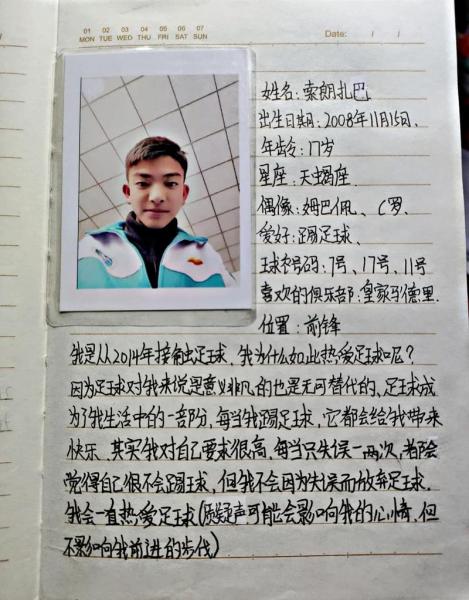 01 02 03 04 05 06 07
MON TUE WED THU FRI SAT SUN
Date: / /
姓名:索朗扎巴
出生日期:2008年11月15日.
年龄:17岁
星座:天蝎座.
偶像:姆巴佩、C罗.
爱好:踢足球.
球衣号码:7号、17号、11号
喜欢的俱乐部:皇家马德里.
位置:前锋
我是从2014年接触足球、我为什么如此热爱足球呢?
因为足球对我来说是意义非凡的也是无可替代的、足球成
为了我生活中的一部分,每当我踢足球,它都会给我带来
快乐.其实我对自己要求很高,每当只失误一两次,都会
觉得自己很不会踢球,但我不会因为失误而放弃足球.
我会一直热爱足球(质疑声可能会影响我的心情,但
不影响我前进的步伐)